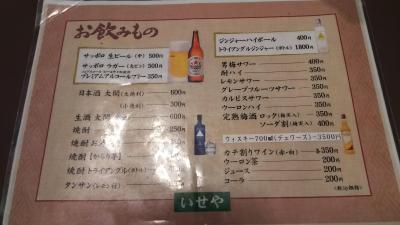 お飲みもの
サッポロ 生ビール (中) 500円
サッポロ ラガー (大びん) 600円
プレミアムアルコールフリー 350円
日本酒 大関 (大徳利) 600円
(小徳利) 300円
生酒 大関
焼酎
焼酎
焼酎【からり芋】
焼酎 トライアングル(ボトル)
タンサン (レモン付) 200円
ジンジャーハイボール 400円
トライアングルジンジャー (ボトル) 1800円
男梅サワー 400円
酎ハイ 350円
レモンサワー 350円
グレープフルーツサワー 350円
カルピスサワー 350円
ウーロンハイ 350円
完熟梅酒 ロック(梅実入) 400円
ソーダ割(梅実入) 400円
ウィスキー700ml(デュワーズ)-3500円
カチ割りワイン(赤・白) 各350円
ウーロン茶 200円
ジュース 200円
コーラ 200円
いせや